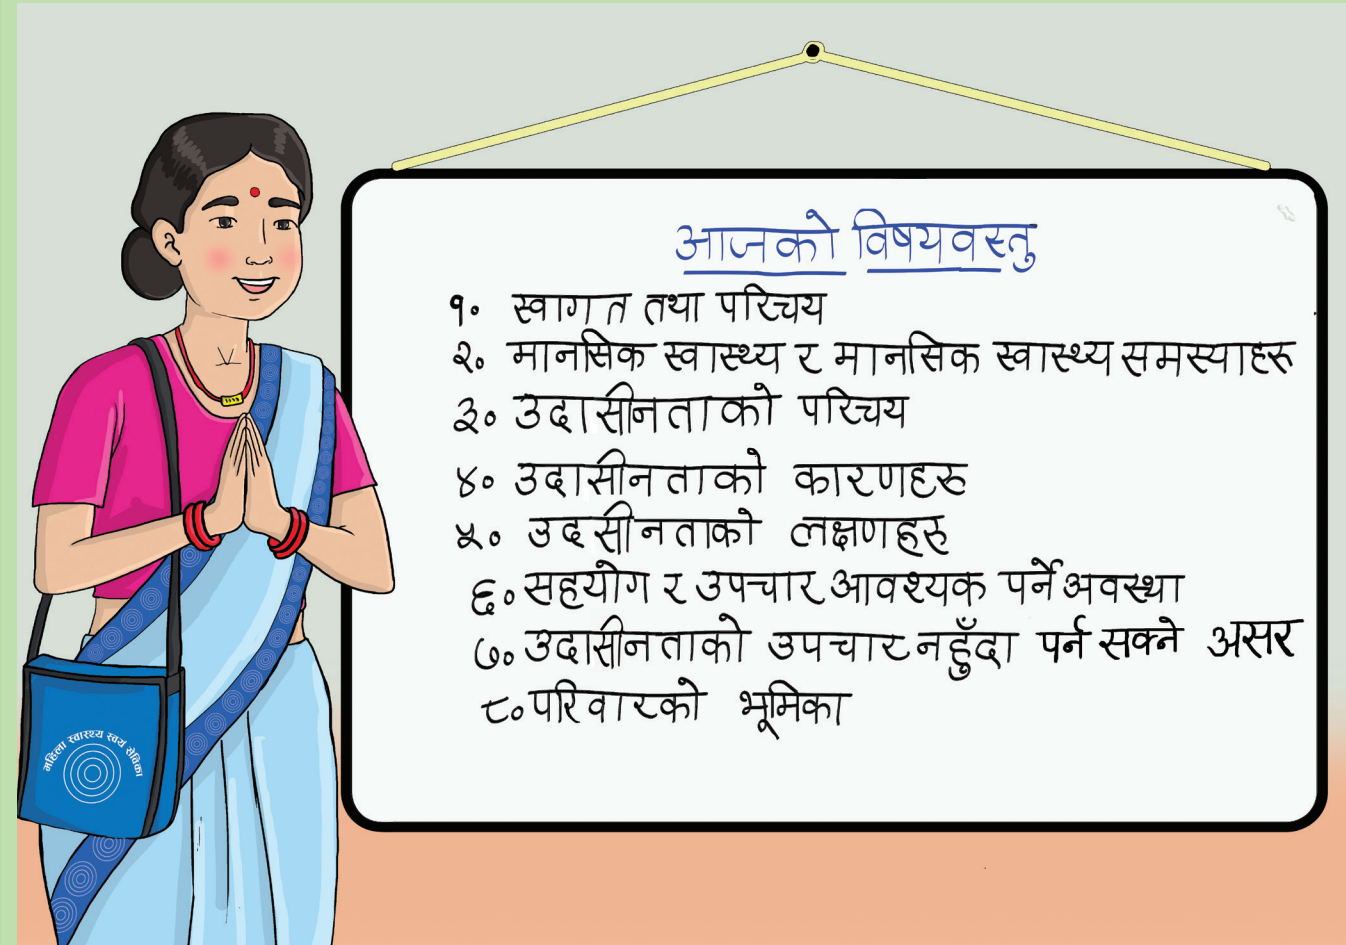 आजको विषयवस्तु
१. स्वागत तथा परिचय
२. मानसिक स्वास्थ्य र मानसिक स्वास्थ्य समस्याहरू
३. उदासीनताको परिचय
४. उदासीनताको कारणहरु
५. उदसीनताको लक्षणहरु
६. सहयोग र उपचार आवश्यक पर्ने अवस्था
७. उदासीनताको उपचार नहुँदा पर्न सक्ने असर
८. परिवारको भूमिका
महिला स्वास्थ्य स्वयं सेविका